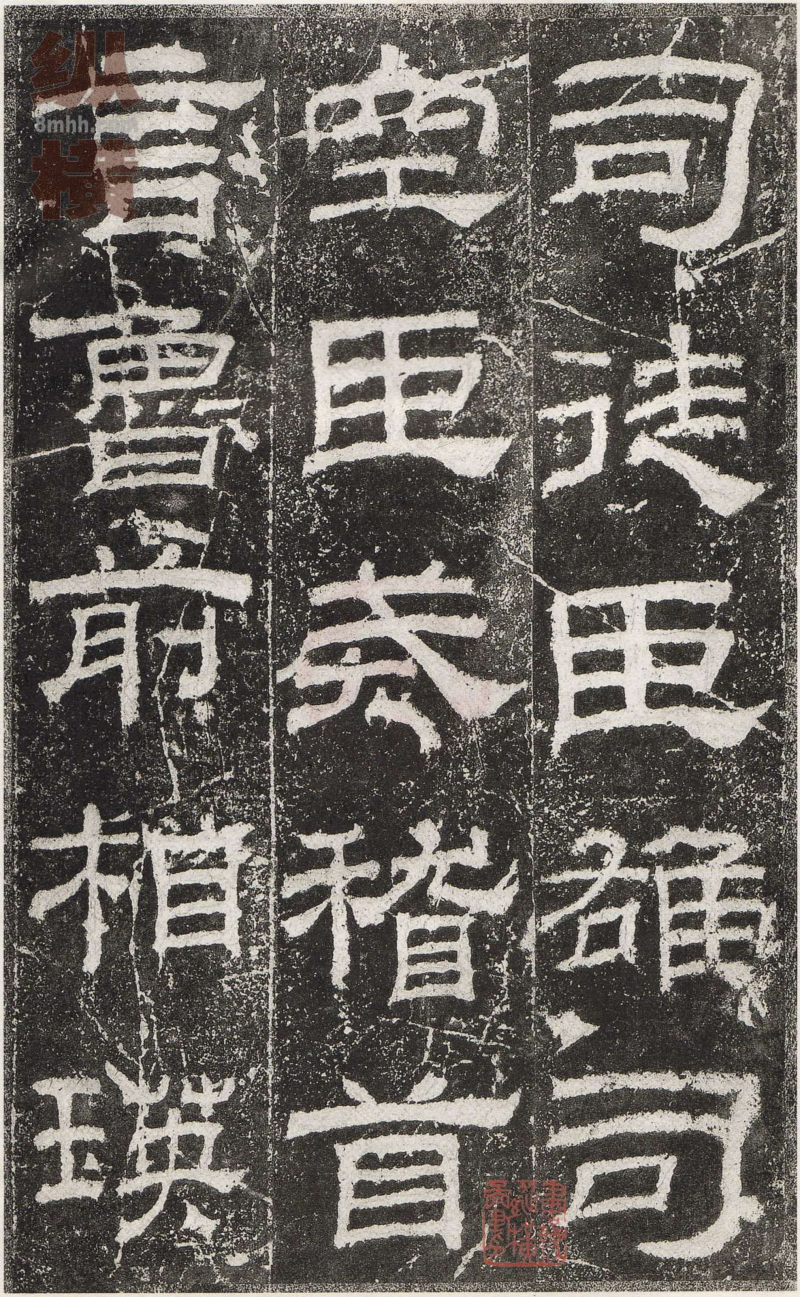 司徒臣雄司
空臣戒稽首
言魯前相瑛
纵横
8mhh.